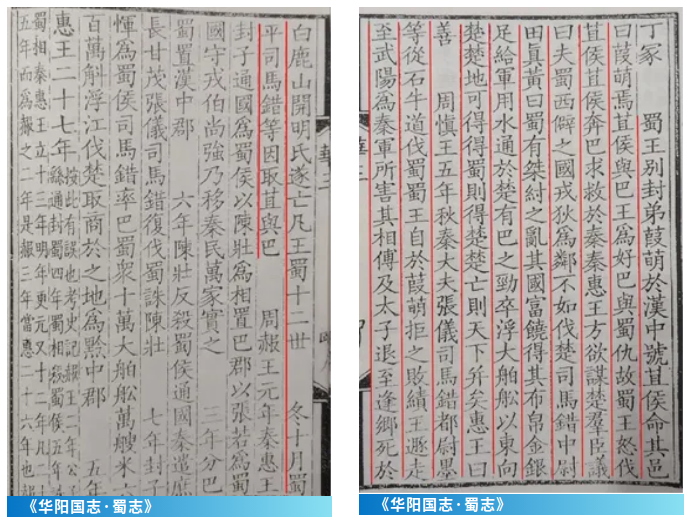 丁冢 蜀王別封弟葭萌於漢中號苴侯命其邑
曰葭萌焉苴侯與巴王為好巴與蜀仇故蜀王怒伐
苴侯苴侯奔巴求救於秦秦惠王方欲謀楚羣臣議
曰夫蜀西僻之國戎狄為鄰不如伐楚司馬錯中尉
田眞黃曰蜀有桀紂之亂其國富饒得其布帛金銀
足給軍用水通於楚有巴之勁卒浮大舶船以東向
楚楚地可得得蜀則得楚楚亡則天下并矣惠王曰
善 周愼王五年秋秦大夫張儀司馬錯都尉墨
等從石牛道伐蜀蜀王自於葭萌拒之敗績王遯走
至武陽為秦軍所害其相傅及太子退至逢鄉死於
《华阳国志·蜀志》
白鹿山開明氏遂亡凡王蜀十二世 冬十月蜀
平司馬錯等因取苴與巴 周赧王元年秦惠王
封子通國為蜀侯以陳壯為相置巴郡以張若為蜀
國守戎伯尚強乃移秦民萬家實之 三年分巴
蜀置漢中郡 六年陳壯反殺蜀侯通國秦遣庶
長甘茂張儀司馬錯復伐蜀誅陳壯 七年封子
惲為蜀侯司馬錯率巴蜀衆十萬大舶船萬艘米六
百萬斛浮江伐楚取商於之地為黔中郡 五年
惠王二十七年
按此有誤也考史記赧王二年公子
繇通封蜀四年蜀相殺蜀侯五年
蜀相秦惠王立十三年明年更元又十二年凡
五年而為赧之二年是赧三年當惠二十六年也赧
《华阳国志·蜀志》